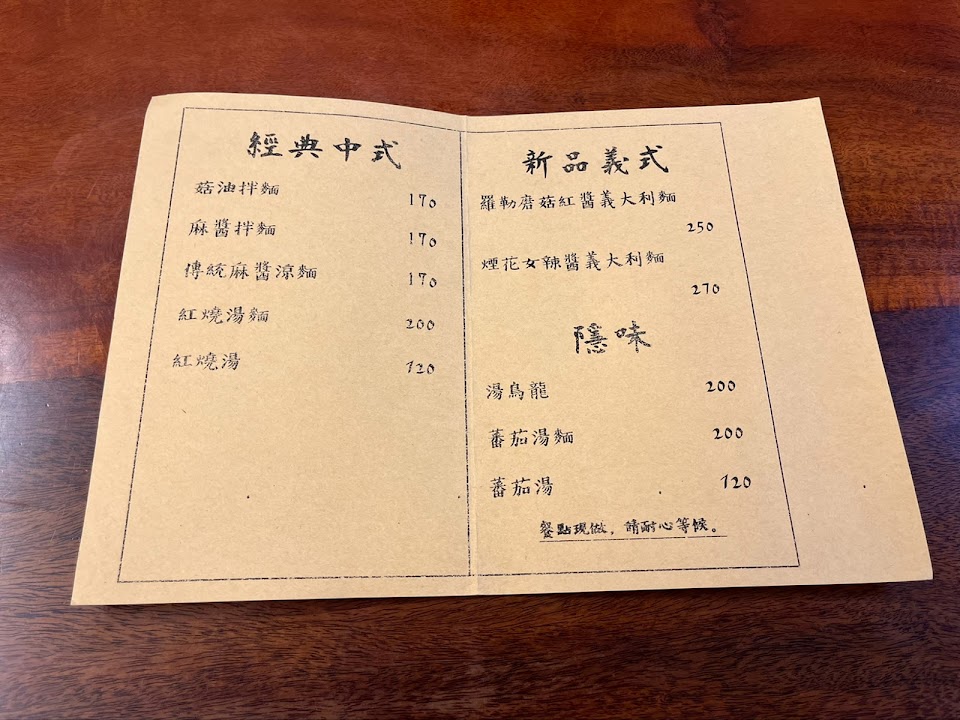 經典中式
菇油拌麵 170
麻醬拌麵 170
傳統麻醬涼麵 170
紅燒湯麵 200
紅燒湯 120
新品義式
羅勒磨菇紅醬義大利麵
250
煙花女辣醬義大利麵
270
隱味
湯烏龍 200
蕃茄湯麵 200
蕃茄湯 120
餐點現做，請耐心等候。